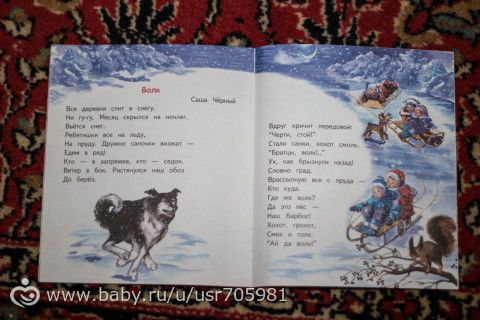 Волк
Саша Чёрный
Вся деревня спит в снегу.
Ни гу-гу. Месяц скрылся на ночлег.
Вьётся снег.
Ребятишки все на льду,
На пруду. Дружно саночки визжат —
Едем в ряд!
Кто — в запряжке, кто — седок.
Ветер в бок. Растянулся наш обоз
До берёз.
Вдруг кричит передовой:
"Черти, стой!"
Стали санки, хохот смолк.
"Братцы, волк!.."
Ух, как брызнули назад!
Словно град.
Врассыпную все с пруда —
Кто куда.
Где же волк?
Да это пёс —
Наш Барбос!
Хохот, грохот,
Смех и толк:
"Ай да волк!"
www.baby.ru/u/usr705981